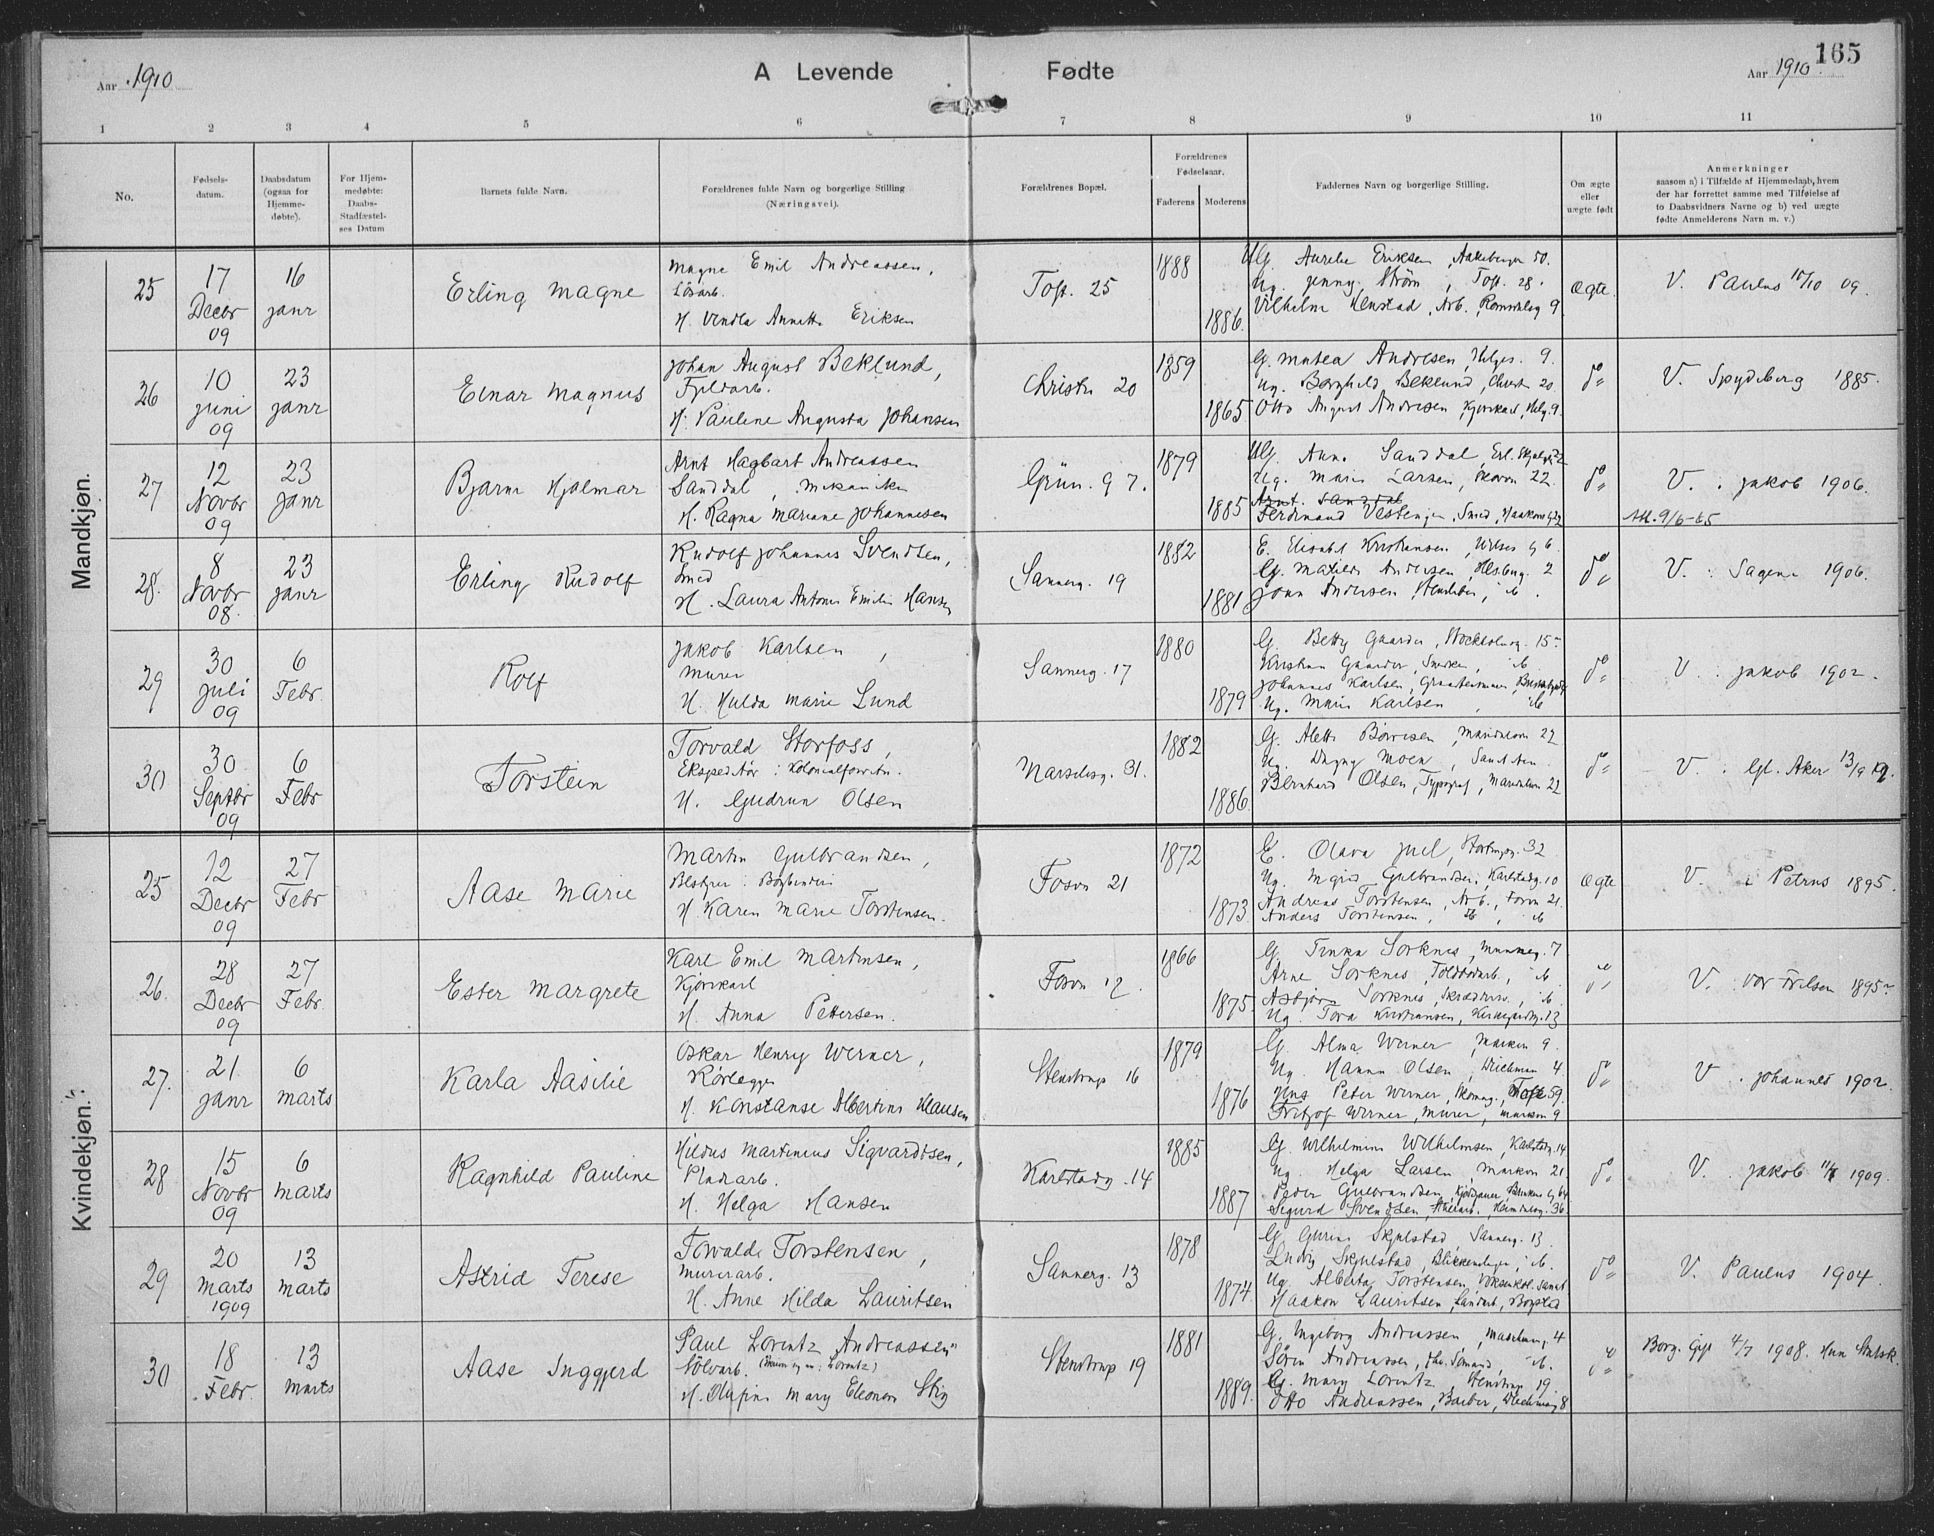 165
Aar 1910
A Levende Fødte
Aar 1910
1 2 3 4 5 6 7 8 9 10 11
No.
Fødsels-
datum.
Daabsdatum
(ogsaa for
Hjemme-
døbte).
For Hjem-
medøbte:
Daabs-
Stadfæstel-
ses Datum
Barnets fulde Navn.
Forældrenes fulde Navn og borgerlige Stilling
(Næringsvei).
Forældrenes Bopæl.
Forældrenes
Fødselsaar.
Faderens Moderens
Faddernes Navn og borgerlige Stilling.
Om ægte
eller
uægte født
Anmerkninger
saasom a) i Tilfælde af Hjemmedaab, hvem
der har forrettet samme med Tilføielse af
to Daabsvidners Navne og b) ved uægte
fødte Anmelderens Navn m. v.)
Mandkjøn.
25
17
Decbr
09
16
Janr
Erling Magne
Magne Emil Andreassen,
Løsarb.
H. Vendla Annette Eriksen
Toft. 25
1888
1886
Ug. Jenny Strøm, Toft. 28.
Vilhelm Henstad, Arb.
Ægte.
V. Paulus 10/10 09.
26
10
Juni
09
23
Janr
Einar Magnus
Johan August Beklund,
Fyldarb.
H. Pauline Augusta Johansen
Christn 20
1859
1865
G. Matea Andresen, Helges. 9.
Ug. Borghild Beklund, Christn 20
Otto August Andresen, Kjørekarl, Helg. 9
do
V. Spydeberg 1885.
27
12
Novbr
09
23
Janr
Bjarne Hjalmar
Arnt Hagbart Andreassen
Sanddal, Mekaniker
H. Ragna Mariane Johannesen
Grün. g 7.
1879
1885
Ug. Anna Sanddal
Ug. Marie Larsen, Skovv 22.
Arnt Sanddal
Ferdinand
do
V. Jakob 1906.
Att. 9/6-65
28.
8
Novbr
08.
23
Janr
Erling Rudolf
Rudolf Johannes Svendsen,
Smed
H. Laura Antonie Emilie Hansen
Sannerg. 19
1882
1881
E. Elisabet Kristiansen
G. Matilde Andersen
John Andersen
do
V. Sagene 1906.
29
30
Juli
09
6
Febr.
Rolf
Jakob Karlsen,
Murer
H. Hulda Marie Lund
Sannerg. 17
1880
1879
G. Betty Gaarder, Stockholmg. 15
Kristian Gaarder, Snedker, ib.
Johannes Karlsen
Ug. Marie Karlsen, ib
do
V. Jakob 1902.
30
30
Septbr
09
6
Febr
Torstein
Torvald Storfoss,
Ekspeditør i Kolonialforretn.
H. Gudrun Olsen
Marselisg. 31.
1882
1886
G. Alette Børresen, Maridalsv 22
Ug. Dagny Moen
Bernhard Olsen, Typograf, Maridalsv 22
do
V. Gl. Aker 13/9
Kvindekjøn.
25
12
Decbr
09
27
Febr
Aase Marie
Martin Gulbrandsen,
Bestyrer i Bogbinderi
H. Karen Marie Torstensen.
Fosvn 21
1872
1873
E. Olava Juel, 32
Ug. Ingrid Gulbrandsen, Karlstadg. 10
Andreas Torstensen, Arb., Fosvn 21.
Anders Torstensen, do, ib
Ægte
V. i Petrus 1895.
26.
28
Decbr
09
27
Febr.
Ester Margrete
Karl Emil Martinsen,
Kjørekarl
H. Anna Pettersen.
Fosvn 12.
1866
1875.
G. Tinka Sorknes, 7
Arne Sorknes, Toldbodarb., ib
Asbjørn Sorknes, ib.
Ug. Tora Kristiansen, Kirkegaardsg. 13
do
V. Vor Frelsers 1895
27.
21.
Janr
09
6
Marts
Karla Aasilie
Oskar Henry Werner,
Rørlægger
H. Konstanse Albertine Klausen
Stenstrups 16
1879
1876
G. Alma Werner, Markvn 9.
Ug. Hanna Olsen, Deichman 4
Jens Peter Werner, Toft 59.
Fritjof Werner, Murer, Markvn 9
do
V. Johannes 1902.
28
15
Novbr
09
6
Marts
Ragnhild Pauline
Hildus Martinius Sigvardtsen,
Pladearb.
H. Helga Hansen
Karlstadg. 14
1885
1887
G. Wilhelmine Wilhelmsen, Karlstadg. 14
Ug. Helga Larsen, Markvn 21
Peder Gulbrandsen
Sigurd Svendsen, Heimdalsg. 36
do
V. Jakob 1909.
29
20
Marts
1909
13
Marts
Astrid Terese
Torvald Torstensen,
Murerarb.
H. Anne Hilda Lauritsen
Sannerg. 13
1878
1874
G. Gurine Skjulstad Sannerg. 13.
Ludvig Skjulstad, Blikkenslager, ib.
Ug. Alberta Torstensen
Haakon Lauritsen
do
V. Paulus 1904.
30
18
Febr.
13
Marts
Aase Inggjerd
Paul Lorentz Andreassen
Sølvarb.
H. Olufine Mary Eleonora Stig
Stenstrup 19
1881
1889.
G. Ingeborg Andreassen, 4
Søren Andreassen, ib.
G. Mary Lorentz, Stenstrup 19.
Otto Andreassen, Barber, 8
do
Borg. Gift 4/7 1908.